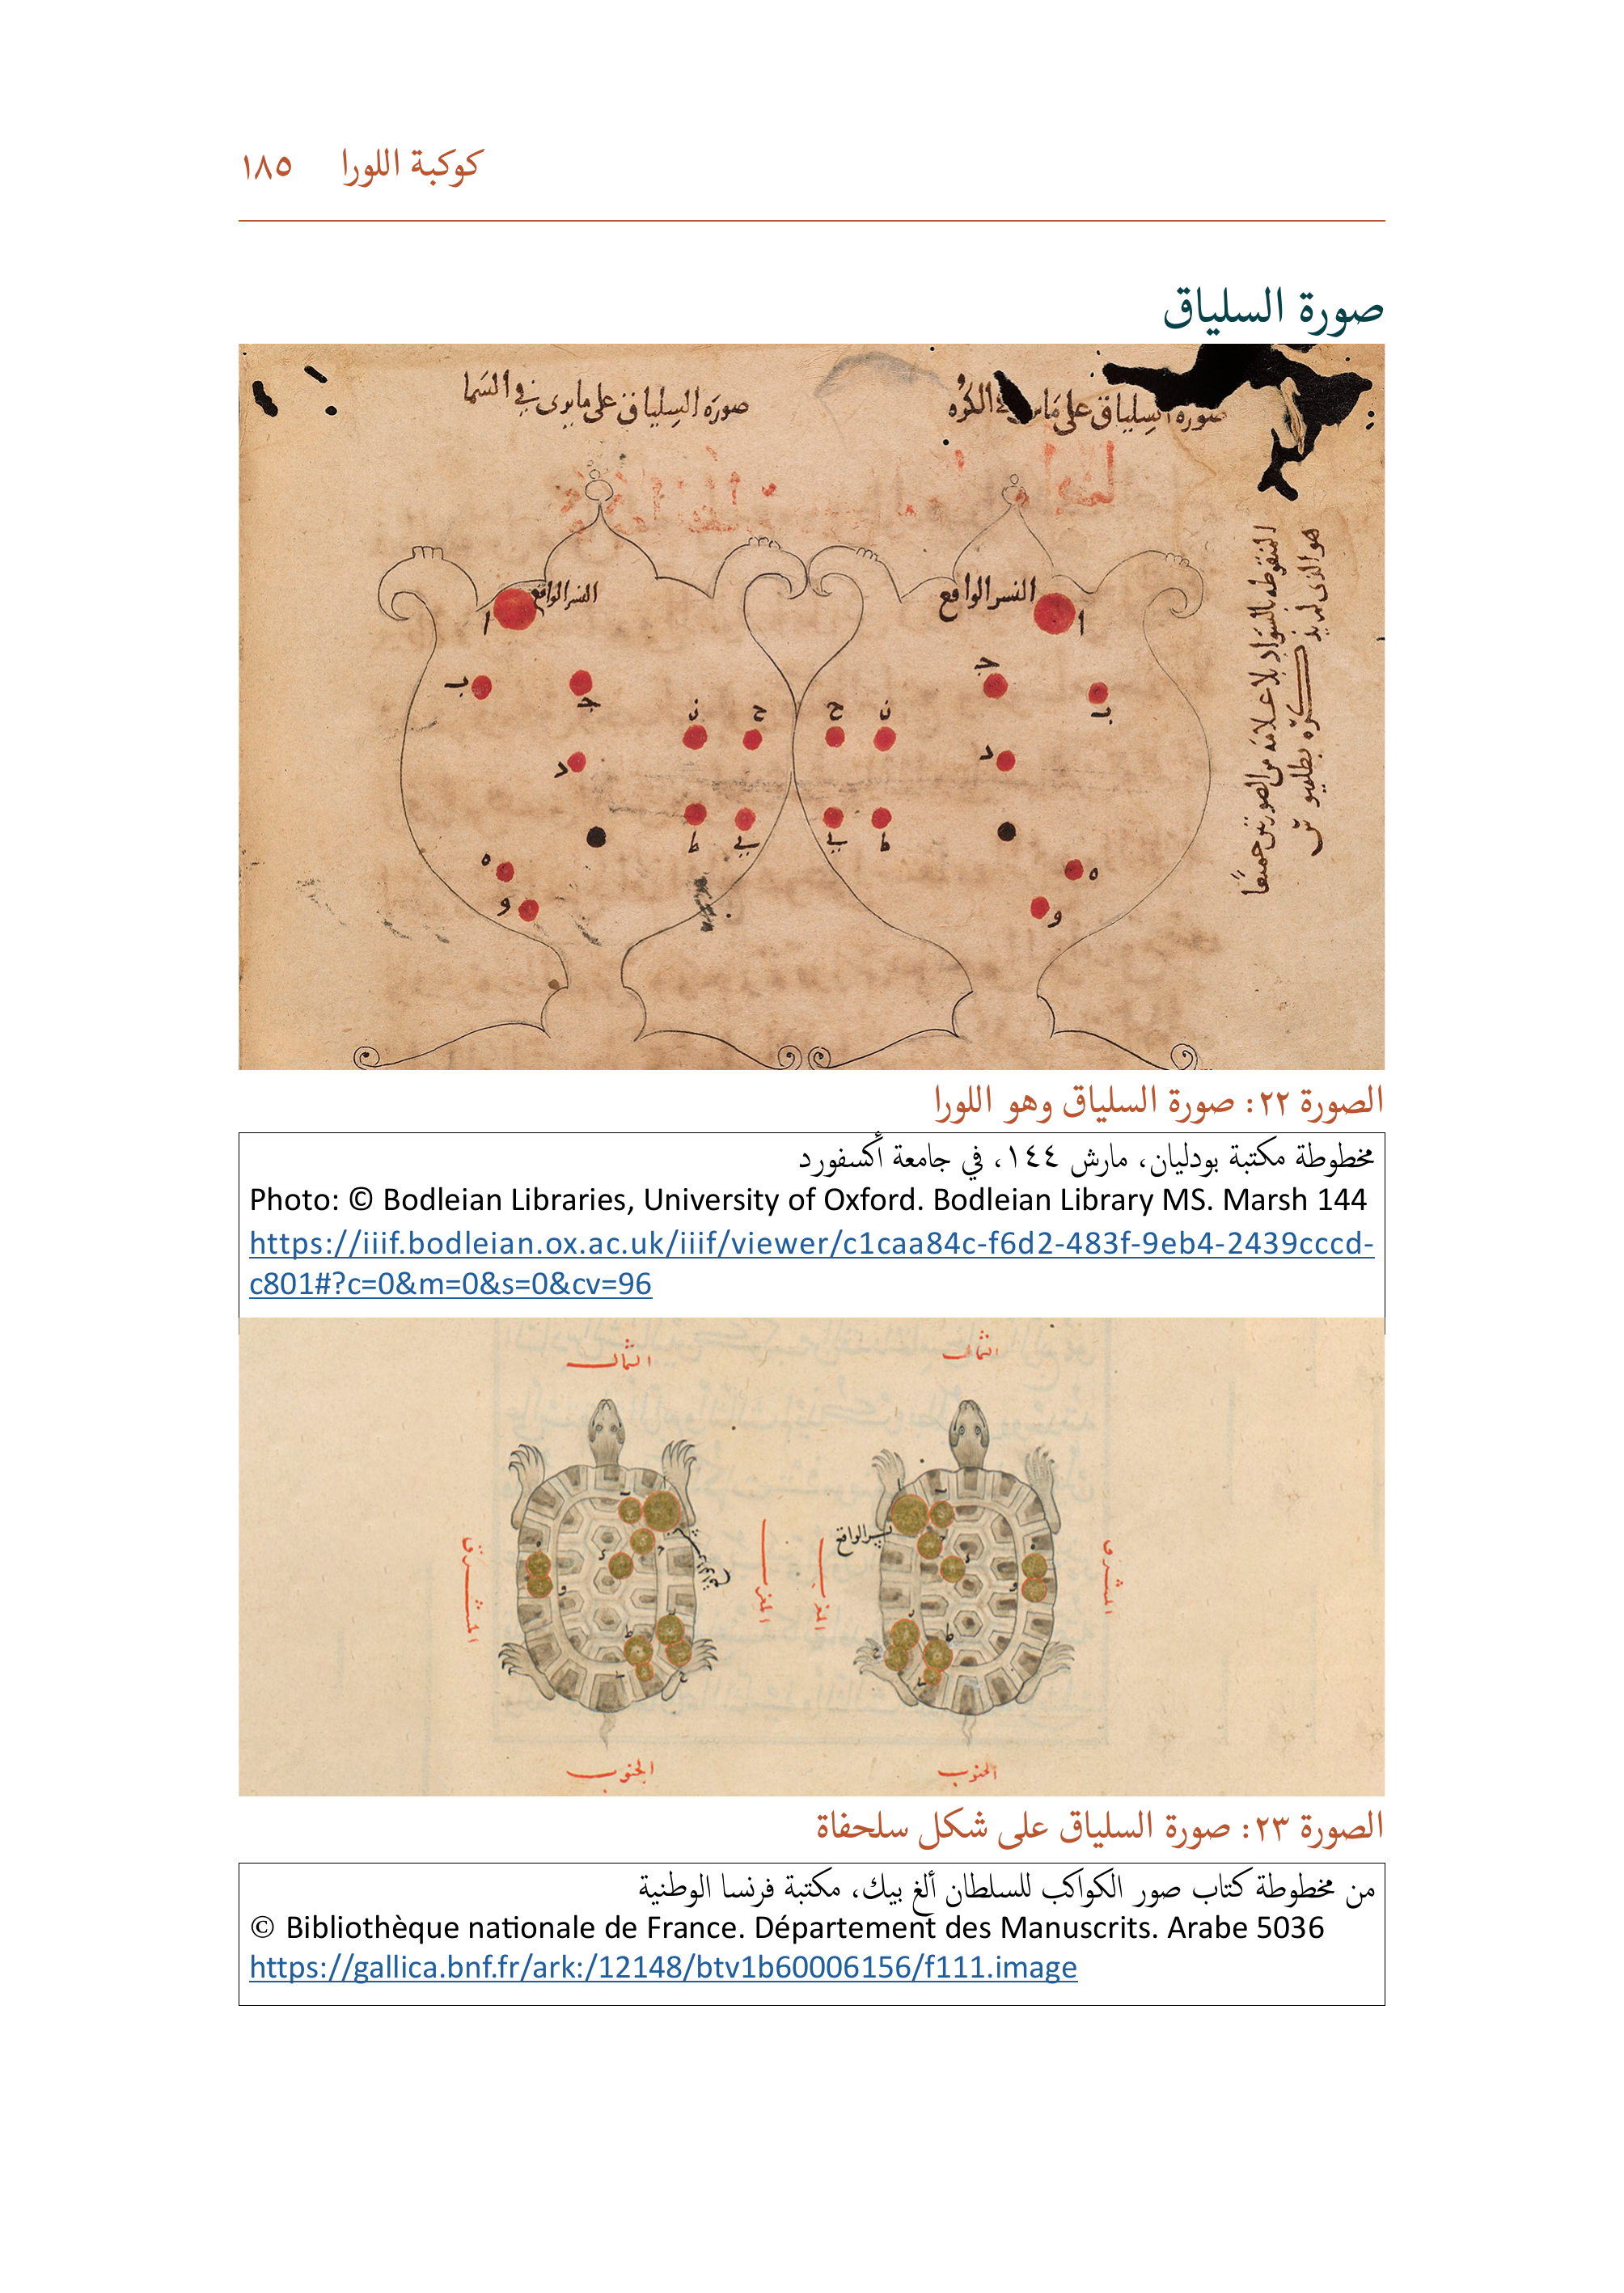 كوكبة اللورا ١٨٥
صورة السلياق
صوره السلياق على ما يرى في السما
النسر الواقع
النسر الواقع
ا
ا
ب
ح
ح
ط
ط
ه
ه
و
و
المنقوطه بالسواد بلا علامه من الصورتين جميعا
الصورة ٢٢: صورة السلياق وهو اللورا
مخطوطة مكتبة بودليان، مارش ١٤٤، في جامعة أكسفورد
Photo: © Bodleian Libraries, University of Oxford. Bodleian Library MS. Marsh 144
https://iiif.bodleian.ox.ac.uk/iiif/viewer/c1caa84c-f6d2-483f-9eb4-2439cccd-
c801#?c=0&m=0&s=0&cv=96
الشمال
الشمال
المشرق
المغرب
المغرب
المشرق
الجنوب
الجنوب
الصورة ٢٣: صورة السلياق على شكل سلحفاة
من مخطوطة كتاب صور الكواكب للسلطان ألغ بيك، مكتبة فرنسا الوطنية
© Bibliothèque nationale de France. Département des Manuscrits. Arabe 5036
https://gallica.bnf.fr/ark:/12148/btv1b60006156/f111.image